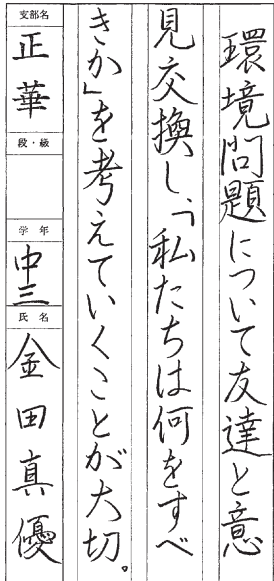 環境問題について友達と意
見交換し、「私たちは何をすべ
きか」を考えていくことが大切。
支部名
正華
段・級
学年
中三
氏名
金田真優